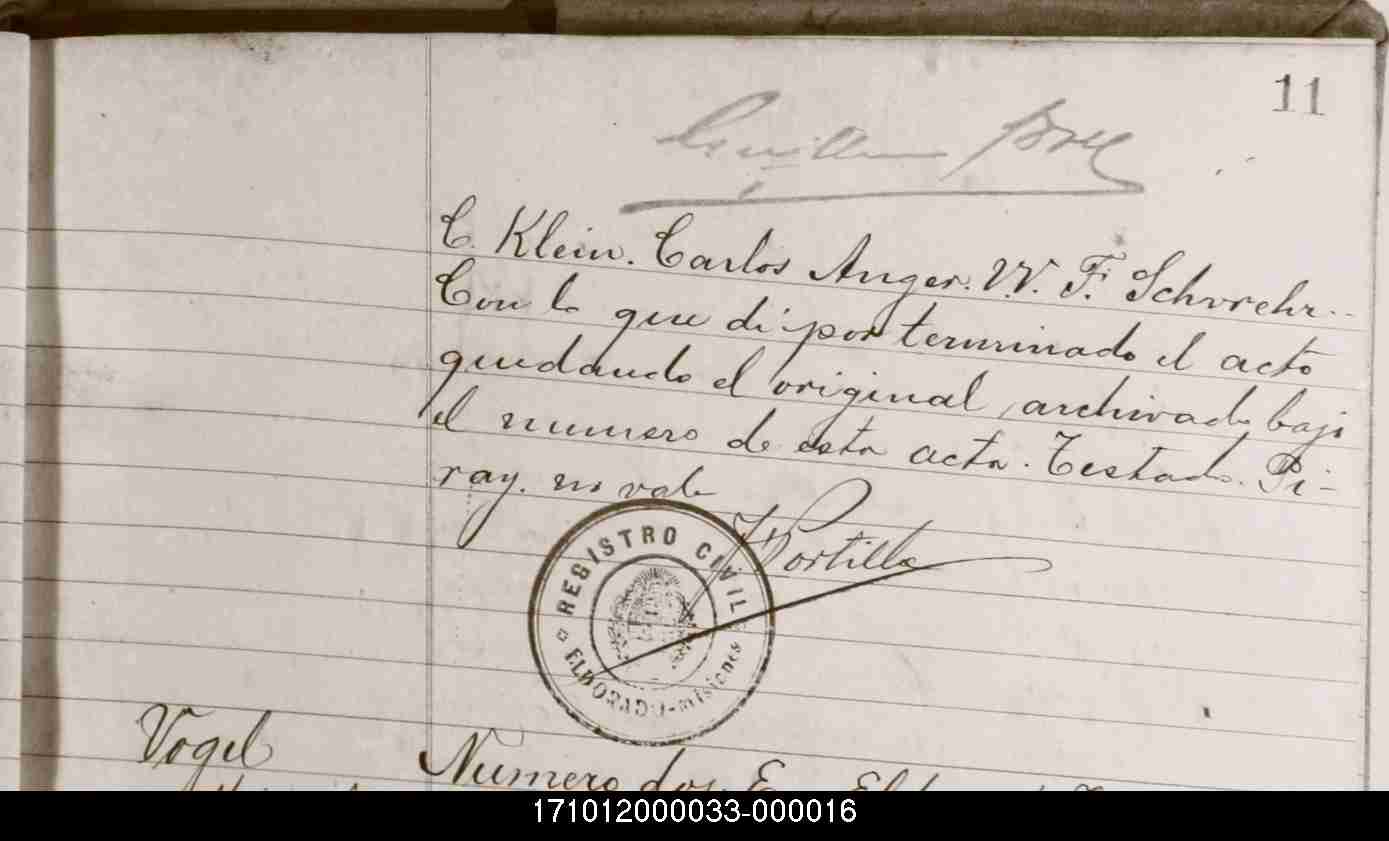 11
Guillermo
C. Klein. Carlos Anger. W. F. Schvrehr..
Con lo que di por terminado el acto
quedando el original archivado bajo
el numero de esta acta. Testado. Pi-
ray. no vale
Portillo
REGISTRO CIVIL
ELDORADO-Misiones
Vogel
Numero dos. En
171012000033-000016